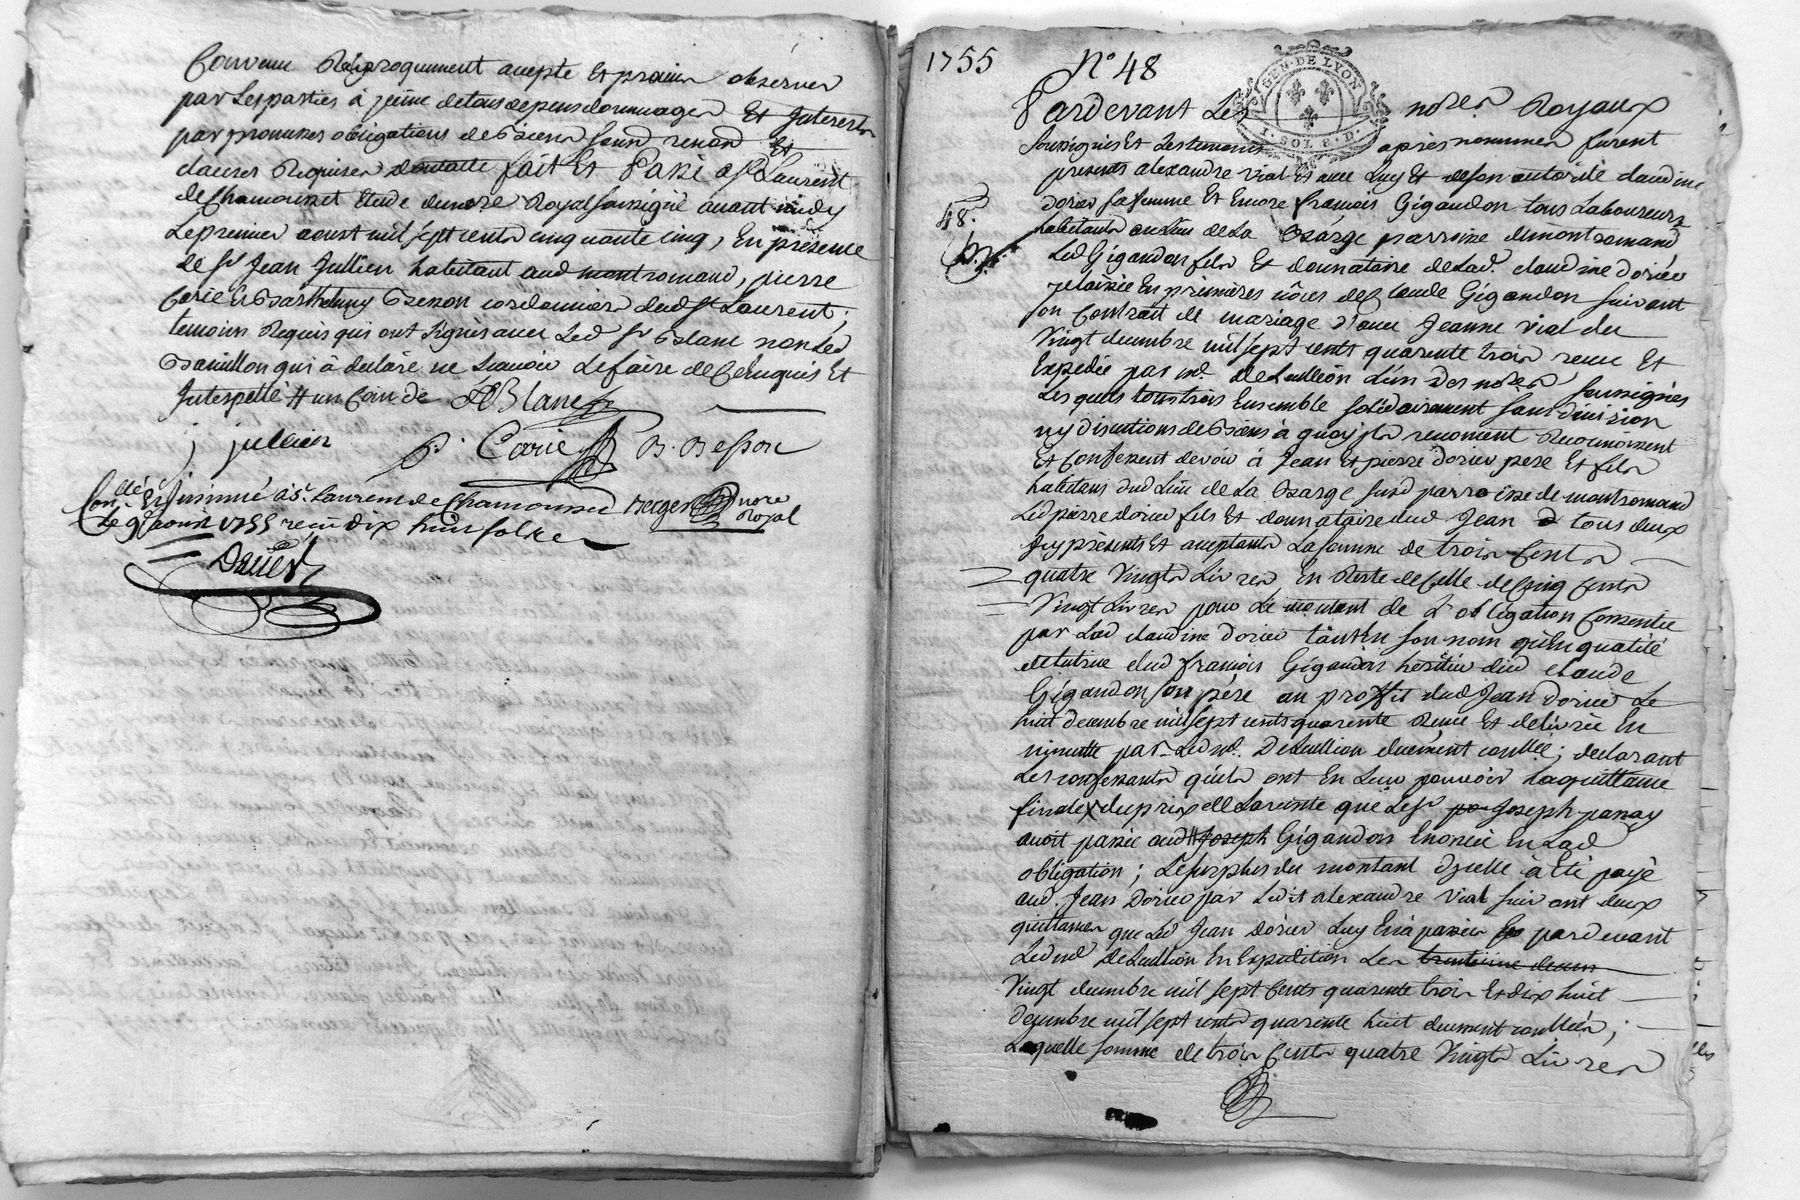 Convenu Réciproquement accepté Et promis observer
par Les parties à peine de tous depens dommages Et Interests
par promesses obligations de Biens soumd renond Et
clauses Requises fait Et Passé a St Laurent
de Chamousset Etude du nore Royal soussigné avant midy
Le premier aoust mil sept cents cinquante cinq, En présence
de Sr Jean Jullien habitant aud montromand, pierre
Corie Et Barthelmy Besson cordonniers dud St Laurent;
temoins Requis qui ont signés avec Led Sr Blanc non Led
Bavillon qui à declaré ne Scavoir Le faire de Ce Enquis Et
Interpellé # un Coin de LeBlanc
j jullien P. Corie B. Besson
Con.lé Et Jnsinué à St. Laurent de Chamousset Berger nore
Le 9e aoust 1755 recu dix huit sols Royal
1755 N° 48
GEN. DE LYON
I. SOL 8. D.
Pardevant Les nores Royaux
Soussignés Et Les temoins apres nommés furent
presents alexandre vial Et avec Luy Et de son autorité claudine
dorier sa femme Et Encore francois Gigandon tous Laboureurs
48.
habitants au Lieu de La Barge parroisse de montromand
Led Gigandon fils Et donnataire de Lad. claudine dorier
relaissée En premières nôces de Claude Gigandon suivant
son Contrait de mariage d'avec Jeanne vial du
Vingt decembre mil sept cents quarente trois recu Et
Expedié par me deLeullion L'un des nores soussignés
Lesquels tous trois Ensemble solidairement sans division
ny discutions de Biens à quoy jls renoncent Reconnoissent
Et Confessent devoir à Jean Et pierre dorier pere Et fils
habitans dud Lieu de La Barge susd parroisse de montromand
Led pierre dorier fils Et donnataire dud Jean tous deux
Jcy présents Et aceptants La somme de trois Cents
quatre Vingts Livres En Reste de Celle de Cinq Cents
Vingt Livres pour Le montant de L'obligation Consentie
par Lad claudine dorier tant En son nom qu'En qualité
de tutrice dud francois Gigandon héritier dud claude
Gigandon son père au proffit dud Jean dorier Le
huit decembre mil sept cents quarente Receu Et delivrée En
minutte par Led me. DeLeullion duement conllée; declarant
Les confessants qu'ils ont En Leur pouvoir La quittance
finale du prix que Le Sr Joseph
avoit passée aud # Joseph Gigandon Enoncée En Lad
obligation; Le surplus du montant d'jcelle à Eté payé
aud. Jean Dorier par Ledit alexandre vial suivant deux
quittances que Led Jean dorier Luy En à passées pardevant
Led me deLeullion En Expedition Les trentieme decem
Vingt decembre mil sept Cents quarente trois Et dix huit
decembre mil sept cents quarente huit duement conllées;
Laquelle somme de trois Cents quatre Vingts Livres